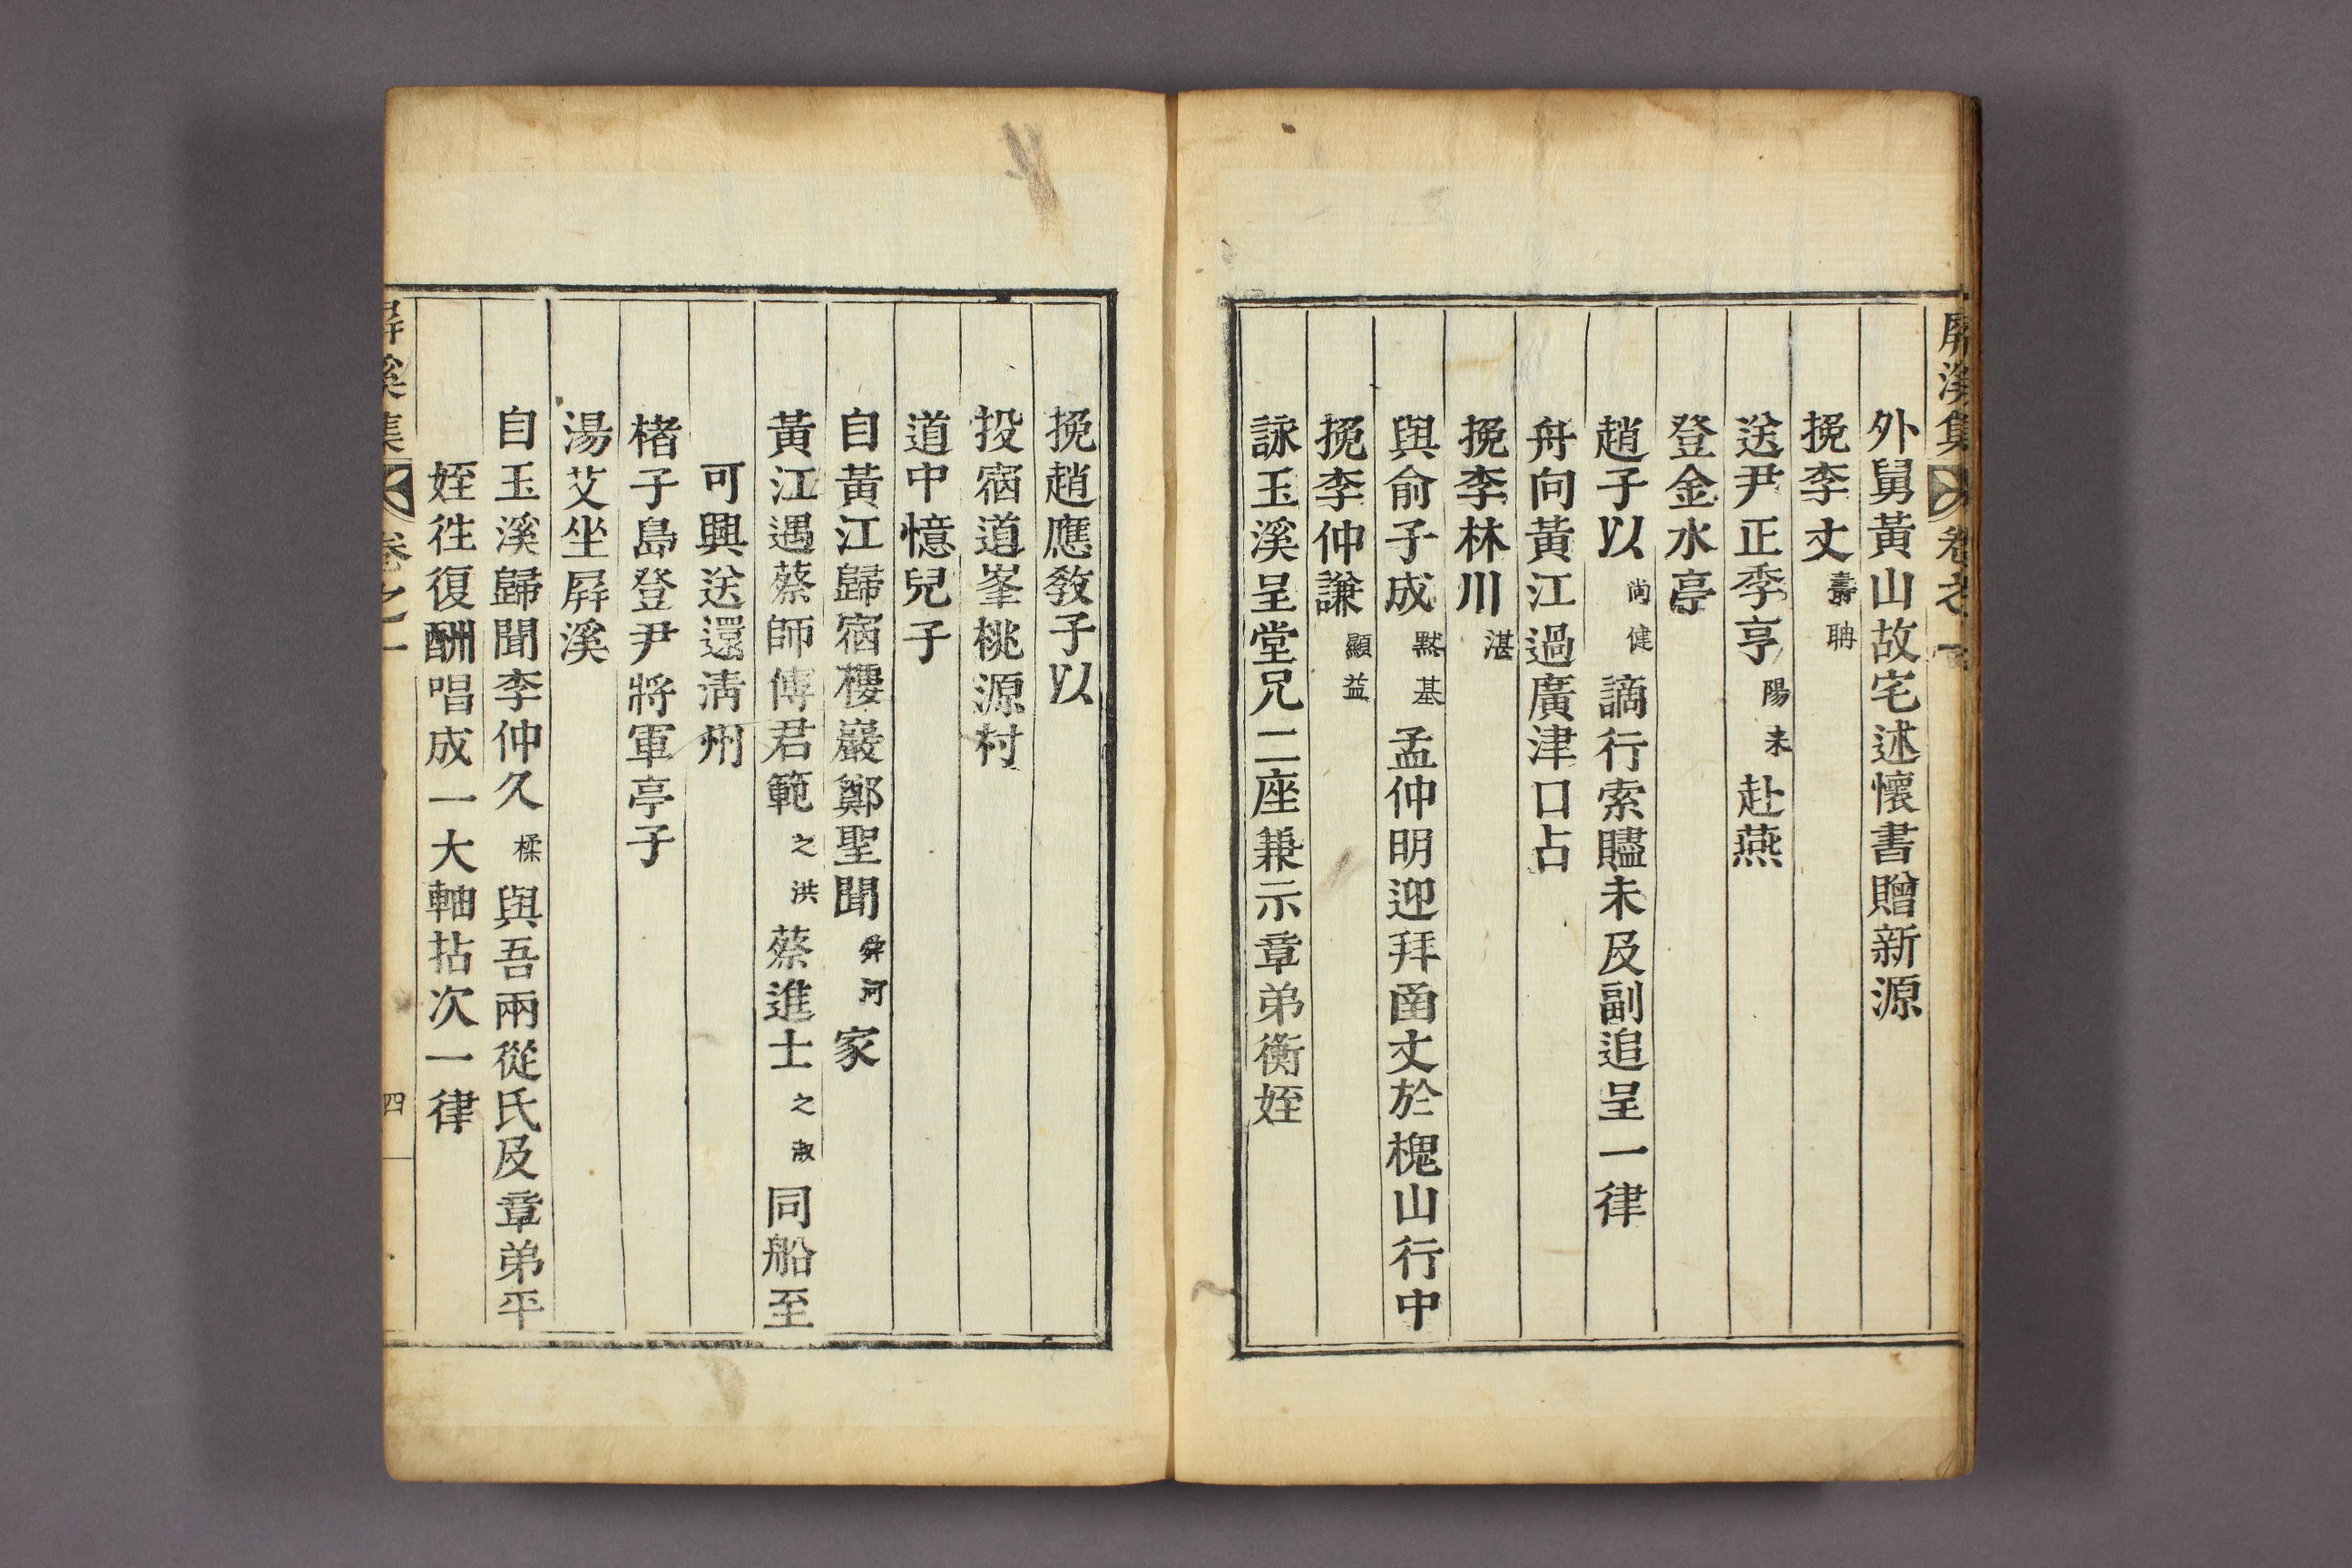 屛溪集 卷之一
外舅黃山故宅述懷書贈新源
挽李丈壽聃
送尹正季亨陽來赴燕
登金水亭
趙子以尙健謫行索贐未及副追呈一律
舟向黃江過廣津口占
挽李林川湛
與俞子成黙基孟仲明迎拜凾丈於槐山行中
挽李仲謙顯益
詠玉溪呈堂兄二座兼示章弟衡姪
挽趙應敎子以
投宿道峯桃源村
道中憶兒子
自黃江歸宿樓巖鄭聖聞舜河家
黃江遇蔡師傅君範之洪蔡進士之淑同船至
可興送還淸州
楮子島登尹將軍亭子
湯艾坐屛溪
自玉溪歸聞李仲久㮨與吾兩從氏及章弟平
姪徃復酬唱成一大軸拈次一律
屛溪集 卷之一 四